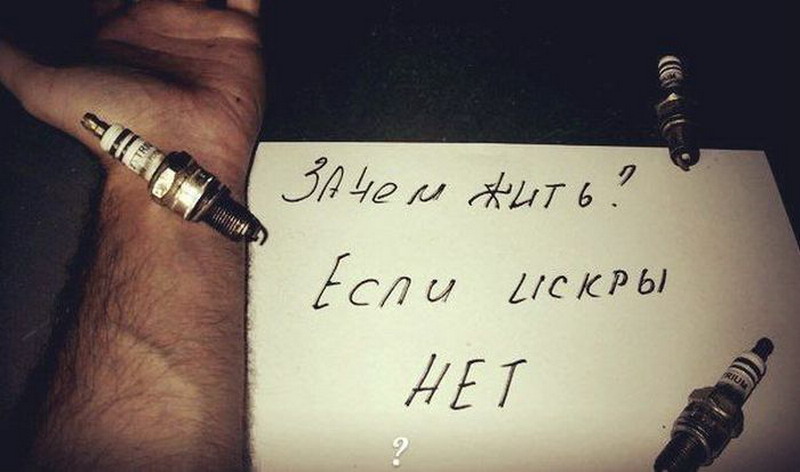 Зачем жить?
Если искры
НЕТ
?
TRIUM